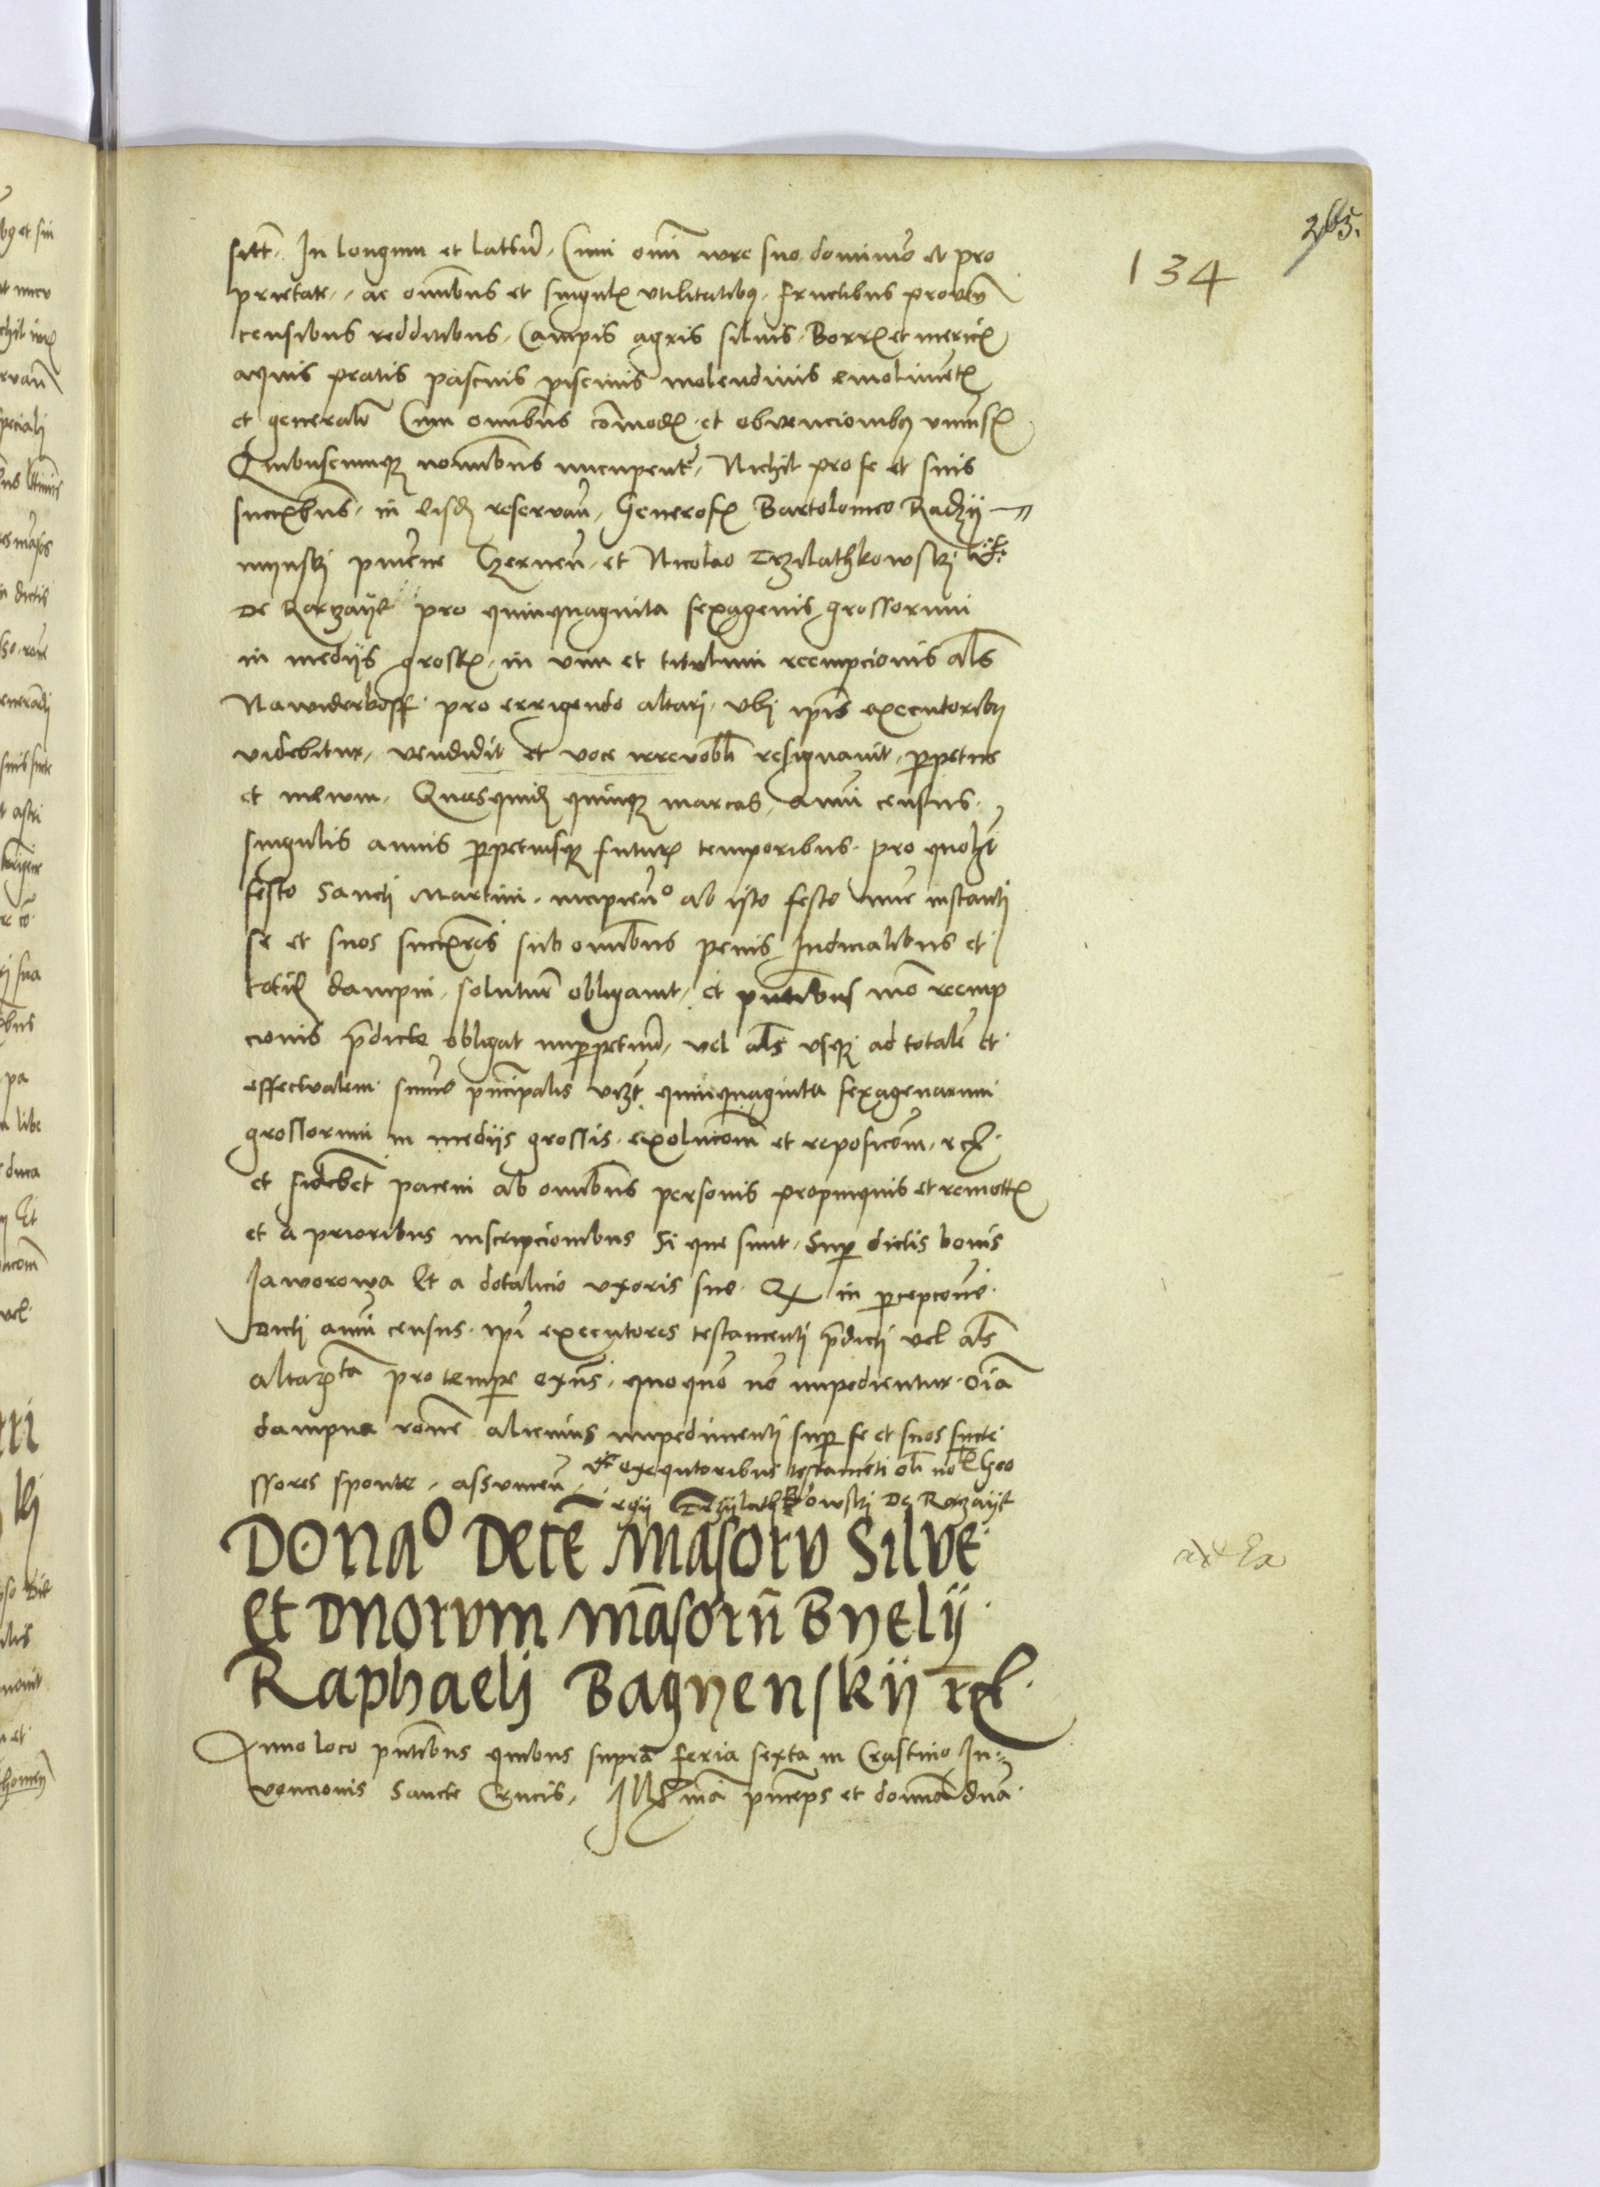 265.
134
sitt. In longum et latum. Cum omi iure suo dominio et pro
prietate, ac omibus et singulis utilitatibus, fructibus proven
censibus redditibus, Campis agris silvis Borris et mericis
aquis pratis pascuis piscinis molendinis emolimentis
et generalr Cum omibus comodis et obvencionibus univsis
Quibuscumque nominibus nucupent, Nichil pro se et suis
succribus in eisdem reservan, Generosis Bartolomeo Radzy
mynski pincerne Czernen, et Nicolao Trzilathkowski
De Korzayk pro quinquaginta sexagenis grossorum
in medijs grossis, in vim et titulum reempcionis als
Nawiderkoff pro errigendo altari, ubi ipis executoribus
videbitur, vendidit et voce irrevobli resignavit, perpetue
et in evum. Quasquidem quinque marcas, annui census
singulis annis perpetuisque futuris temporibus pro quolibet
festo Sancti Martini, incipien ab isto festo nunc instanti
se et suos successores sub omnibus penis Iudicialibus et
dampni, soluturum obligavit, et pntibus mo reemp
cionis predicte obligat imperpetuum, vel als usque ad totale et
effectualem summe principalis vzt quinquaginta sexagenarum
grossorum in medijs grossis exolucom et reposicom, rc
et fidebet pacem ab omnibus personis propinquis et remotis
et a prioribus inscripcionibus Si que sunt, Super dictis bonis
Jaworowa Et a dotalicio uxoris sue. in percepcione
Dicti annui census ipi executores testamenti predicti vel als
altarista pro tempore exns, quoquo no impedientur oia
dampna rone alicuius impedimenti super se et suos succe
ssores sponte, assumen, executoribus testamenti oli nob Geo
rgij Trzylathkowski De Korzayk
Donao Dece Masoru Silve
Et Dnorum Masoru Byely
Raphaeli Bagyenskij rc
Anno loco pntibus quibus supra feria sexta in Crastino In
vencionis Sancte Crucis, Illma princeps et domina dna